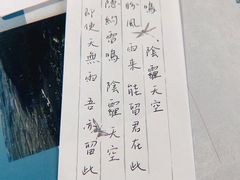 鳴 陰霾天空
盼風雨来 能留君在此
隱約雷鳴 陰霾天空
即使天無雨 吾亦留此